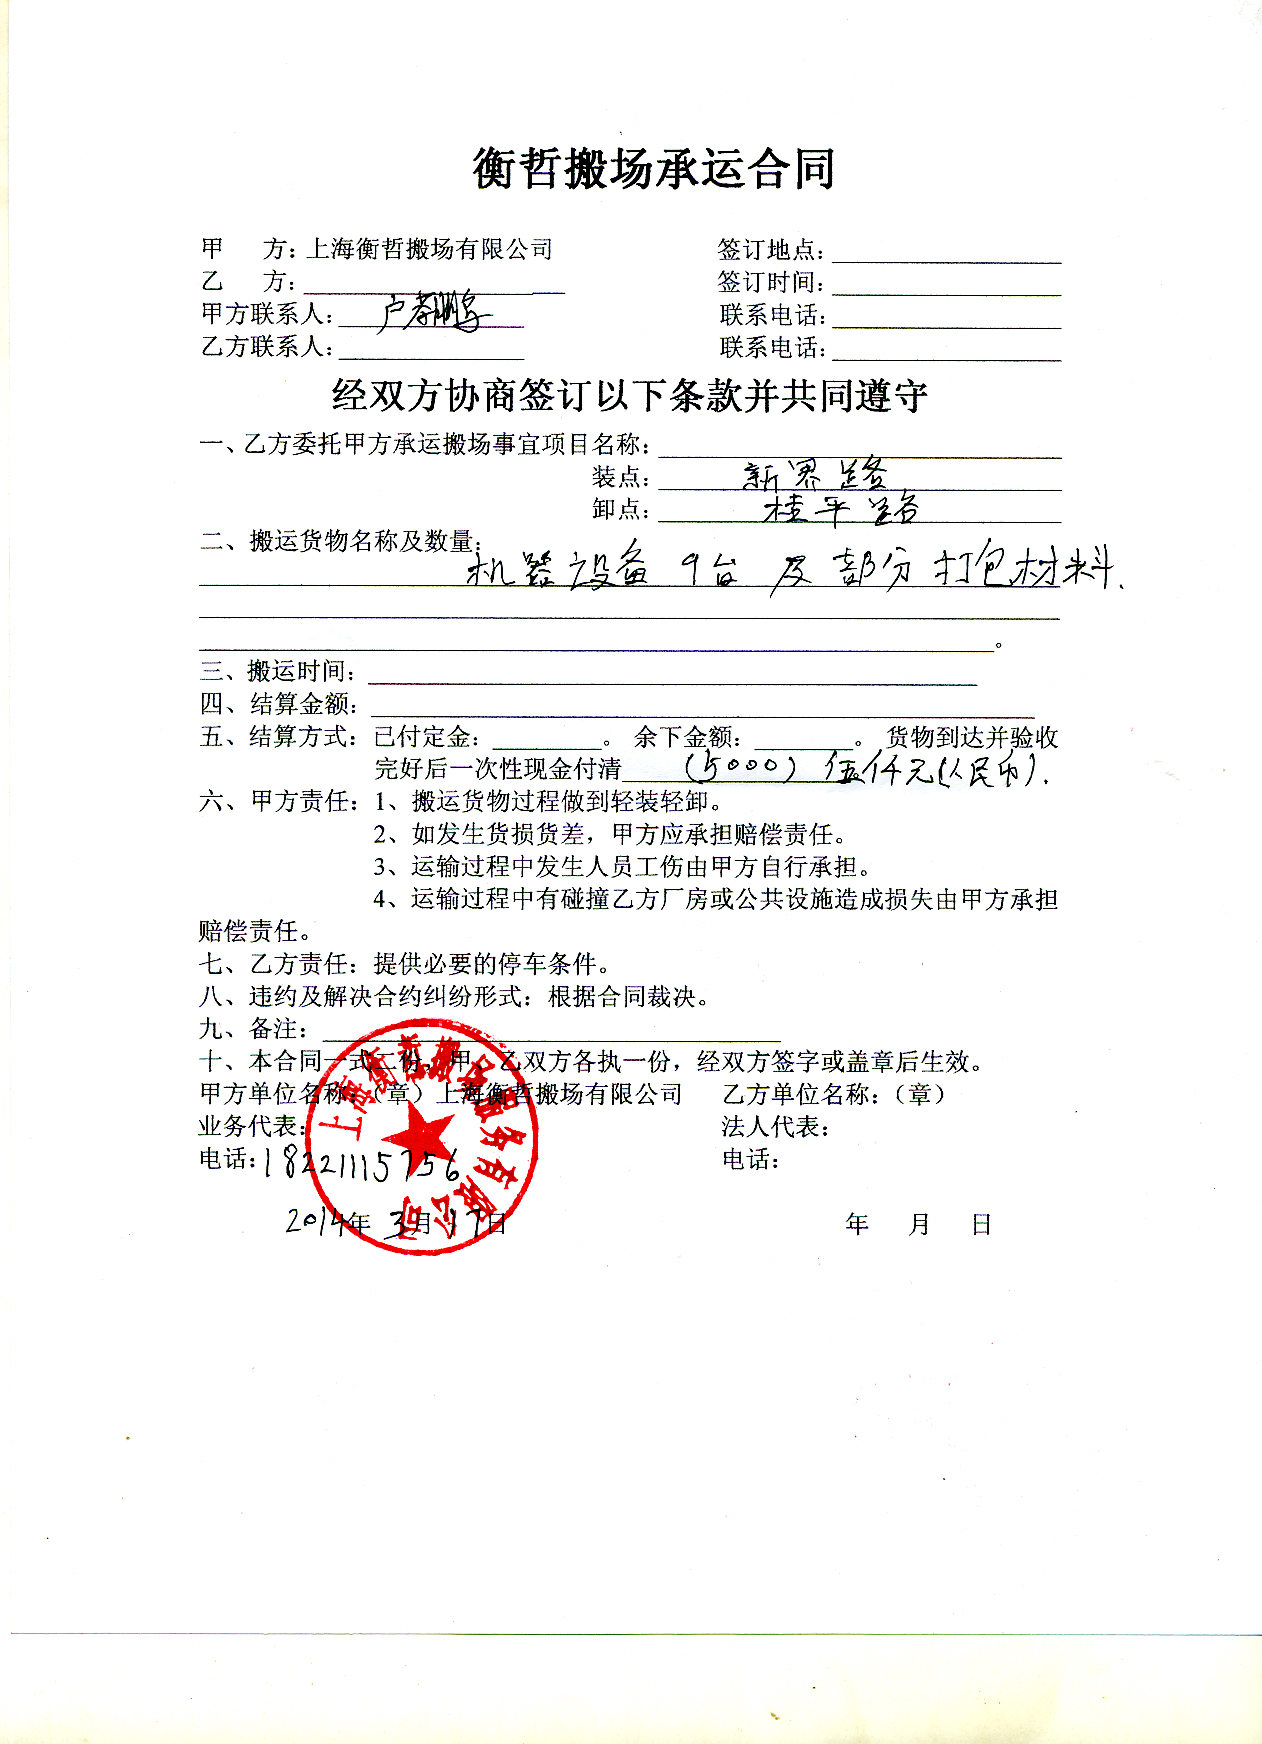 衡哲搬场承运合同
甲 方：上海衡哲搬场有限公司 签订地点：
乙 方： 签订时间：
甲方联系人：卢孝鹏 联系电话：
乙方联系人： 联系电话：
经双方协商签订以下条款并共同遵守
一、乙方委托甲方承运搬场事宜项目名称：
装点：新界路
卸点：桂平路
二、搬运货物名称及数量：
机器设备9台及部分打包材料.
。
三、搬运时间：
四、结算金额：
五、结算方式：已付定金： 。余下金额： 。货物到达并验收
完好后一次性现金付清（5000）伍仟元（人民币）.
六、甲方责任：1、搬运货物过程做到轻装轻卸。
2、如发生货损货差，甲方应承担赔偿责任。
3、运输过程中发生人员工伤由甲方自行承担。
4、运输过程中有碰撞乙方厂房或公共设施造成损失由甲方承担
赔偿责任。
七、乙方责任：提供必要的停车条件。
八、违约及解决合约纠纷形式：根据合同裁决。
九、备注：
十、本合同一式二份，甲、乙双方各执一份，经双方签字或盖章后生效。
甲方单位名称：（章）上海衡哲搬场有限公司 乙方单位名称：（章）
业务代表： 法人代表：
电话：18221115756 电话：
2014年3月17日 年 月 日
上海衡哲搬场服务有限公司